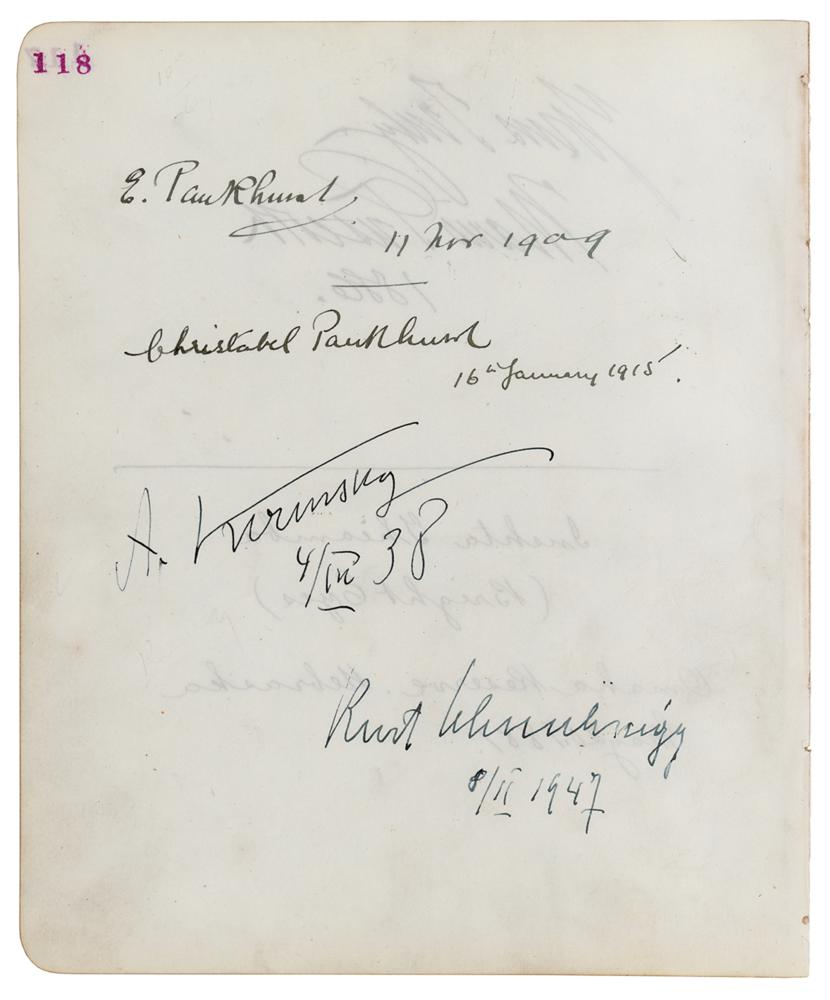 118
E. Pankhurst
11 Nov 1909
Christabel Pankhurst
16th January 1915.
A. Kerensky
4/III 38
Kurt Schuschnigg
8/II 1947